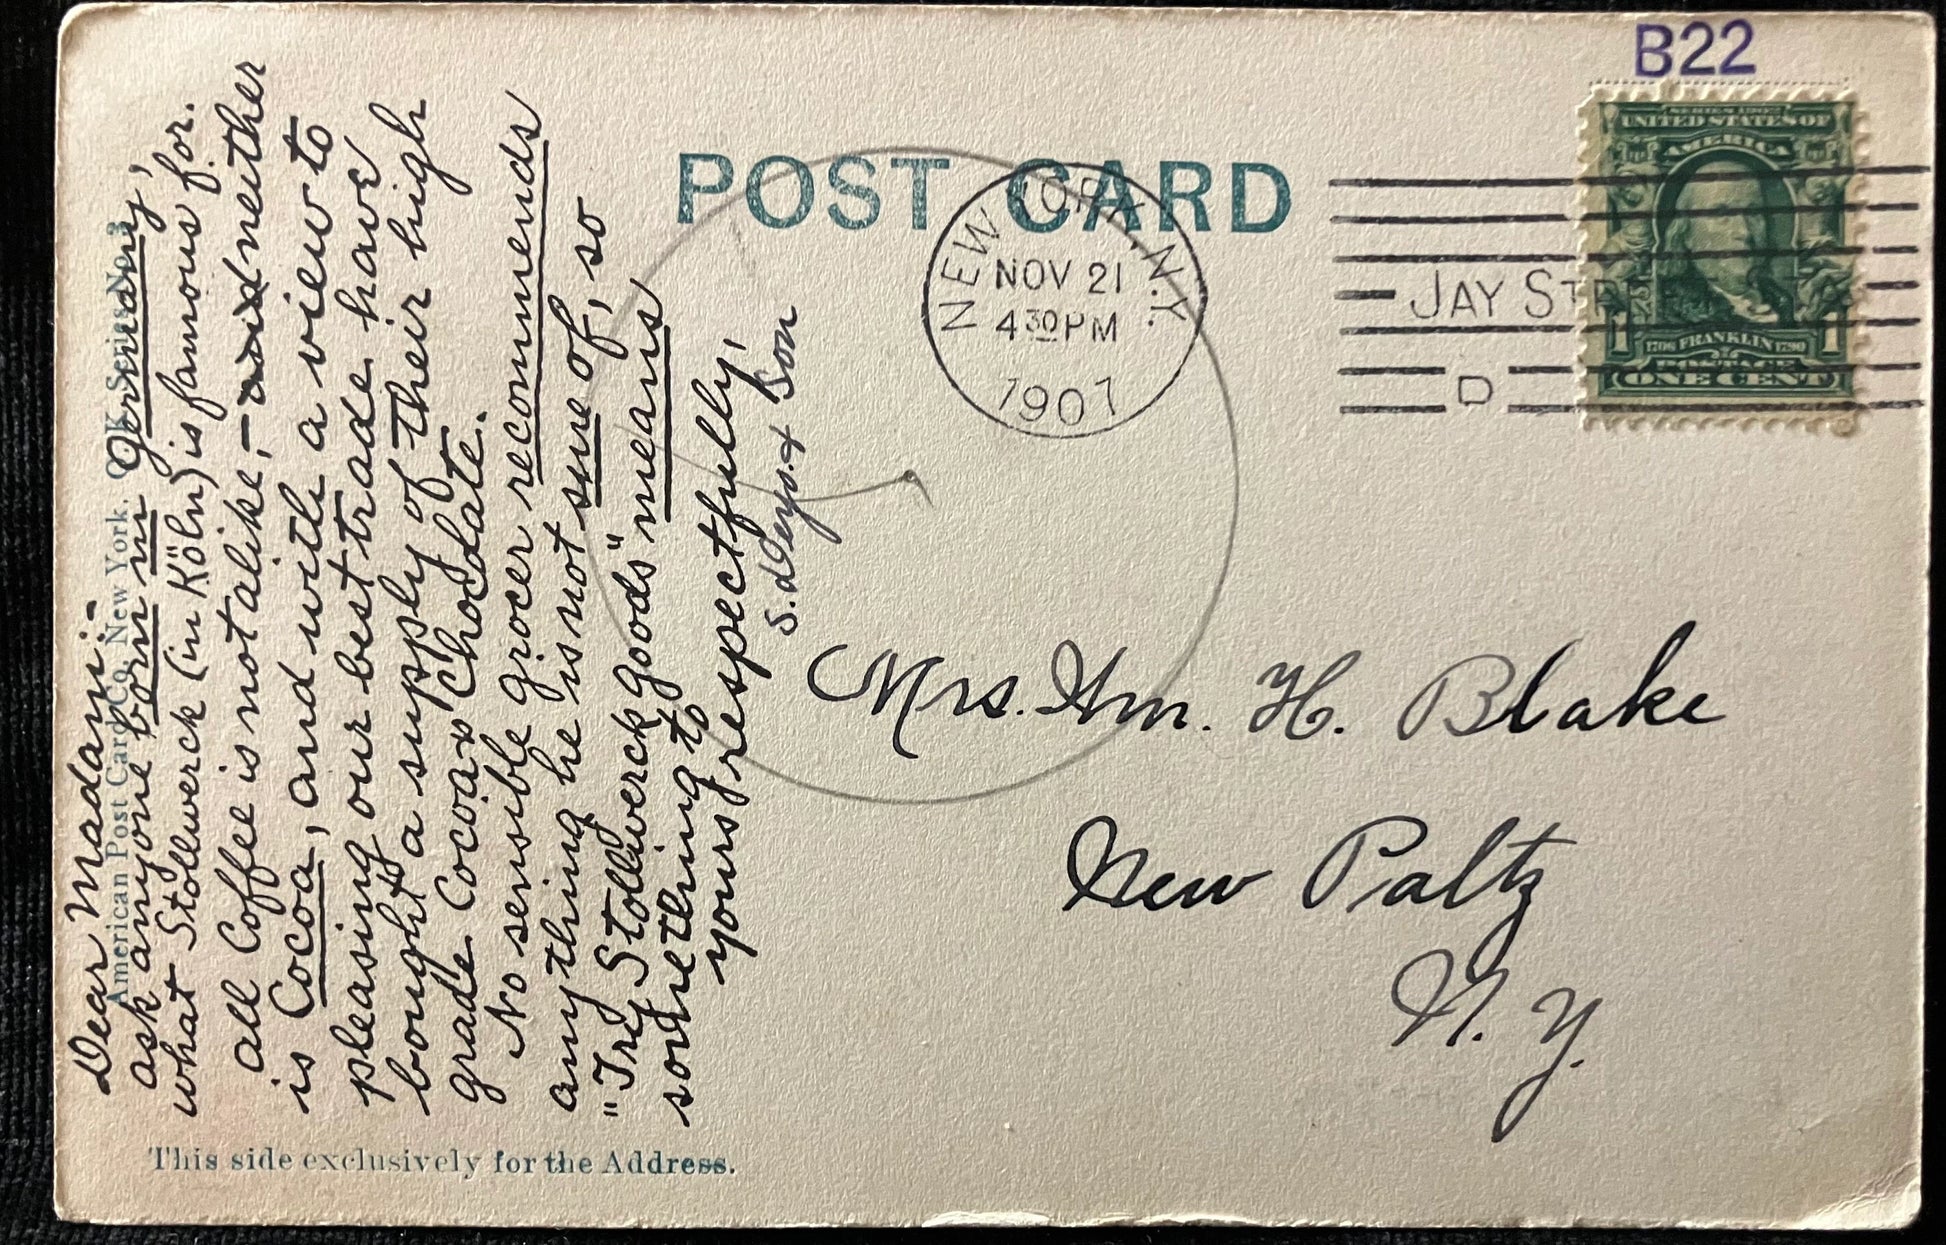 B22
SERIES 1902
UNITED STATES OF
AMERICA
1706 FRANKLIN 1790
1 POSTAGE 1
ONE CENT
POST CARD
NEW YORK, N.Y.
NOV 21
4 30 PM
1907
JAY STREET
D
Dear Madam:-
ask anyone born in Germany,
what Stollwerck (in Köln) is famous for.
all Coffee is not alike,- neither
is Cocoa, and with a view to
pleasing our best trade have
bought a supply of their high
grade Cocoa & Chocolate.
No sensible grocer recommends
anything he is not sure of, so
"Try Stollwerck goods" means
something to
yours respectfully,
S. Deyo. & Son
American Post Card Co. New York. Series No. 3
Mrs. Wm. H. Blake
New Paltz
N. Y.
This side exclusively for the Address.